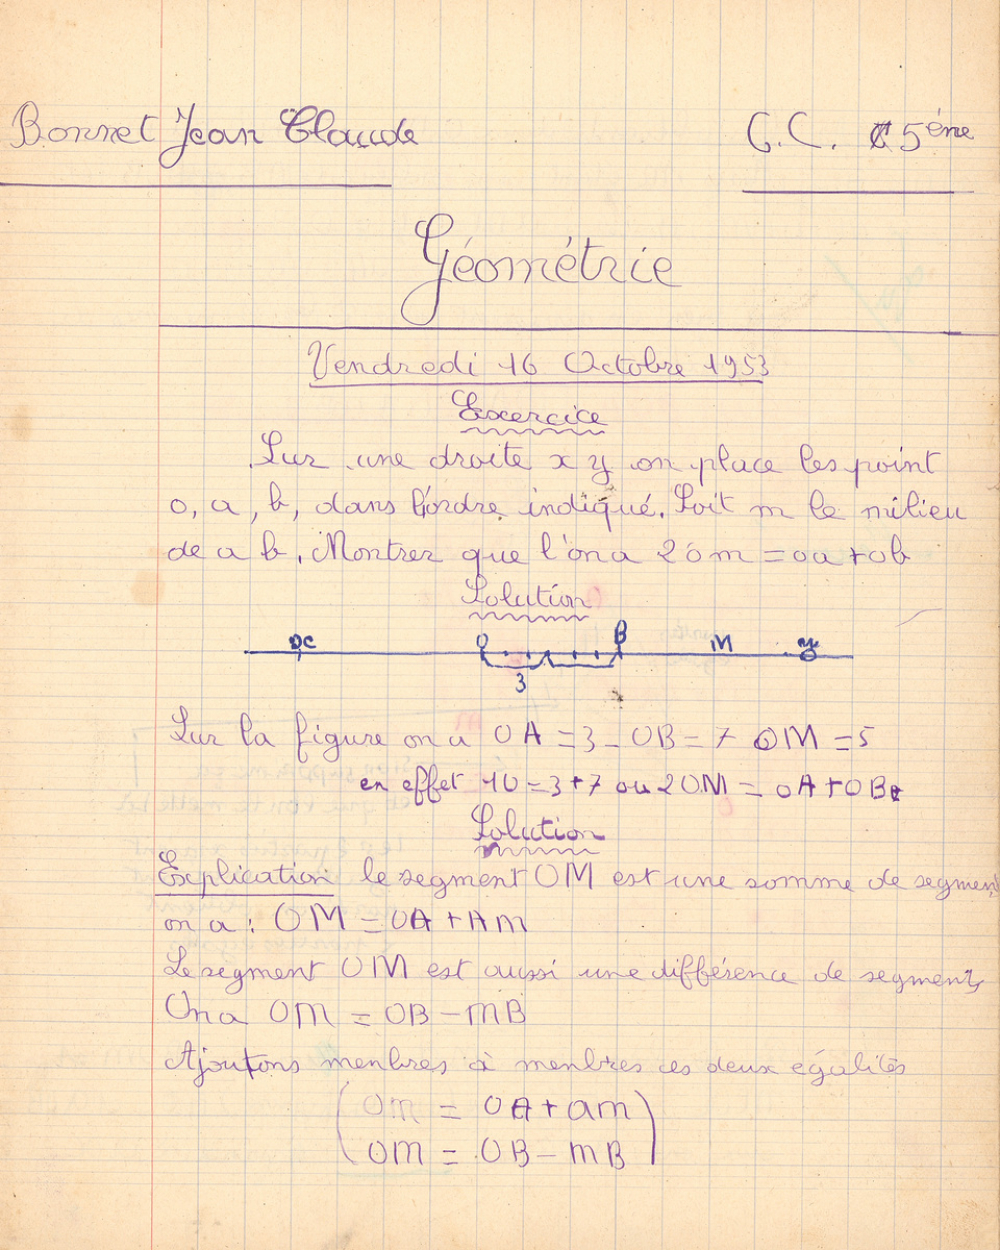 Bonnet Jean Claude
C.C. 5ème
Géométrie
Vendredi 16 Octobre 1953
Excercice
Sur une droite x y on place les point
o, a, b, dans l'ordre indiqué. Soit m le milieu
de a b. Montrer que l'on a 2 o m = oa + ob
Solution
x O B M y
3
Sur la figure on a OA = 3 - OB = 7 OM = 5
en effet 10 = 3 + 7 ou 2 OM = OA + OB
Solution
Explication le segment OM est une somme de segment
on a : OM = OA + AM
Le segment OM est aussi une différence de segments
On a OM = OB - MB
Ajoutons menbres à menbres ces deux égalités
OM = OA + AM
OM = OB - MB